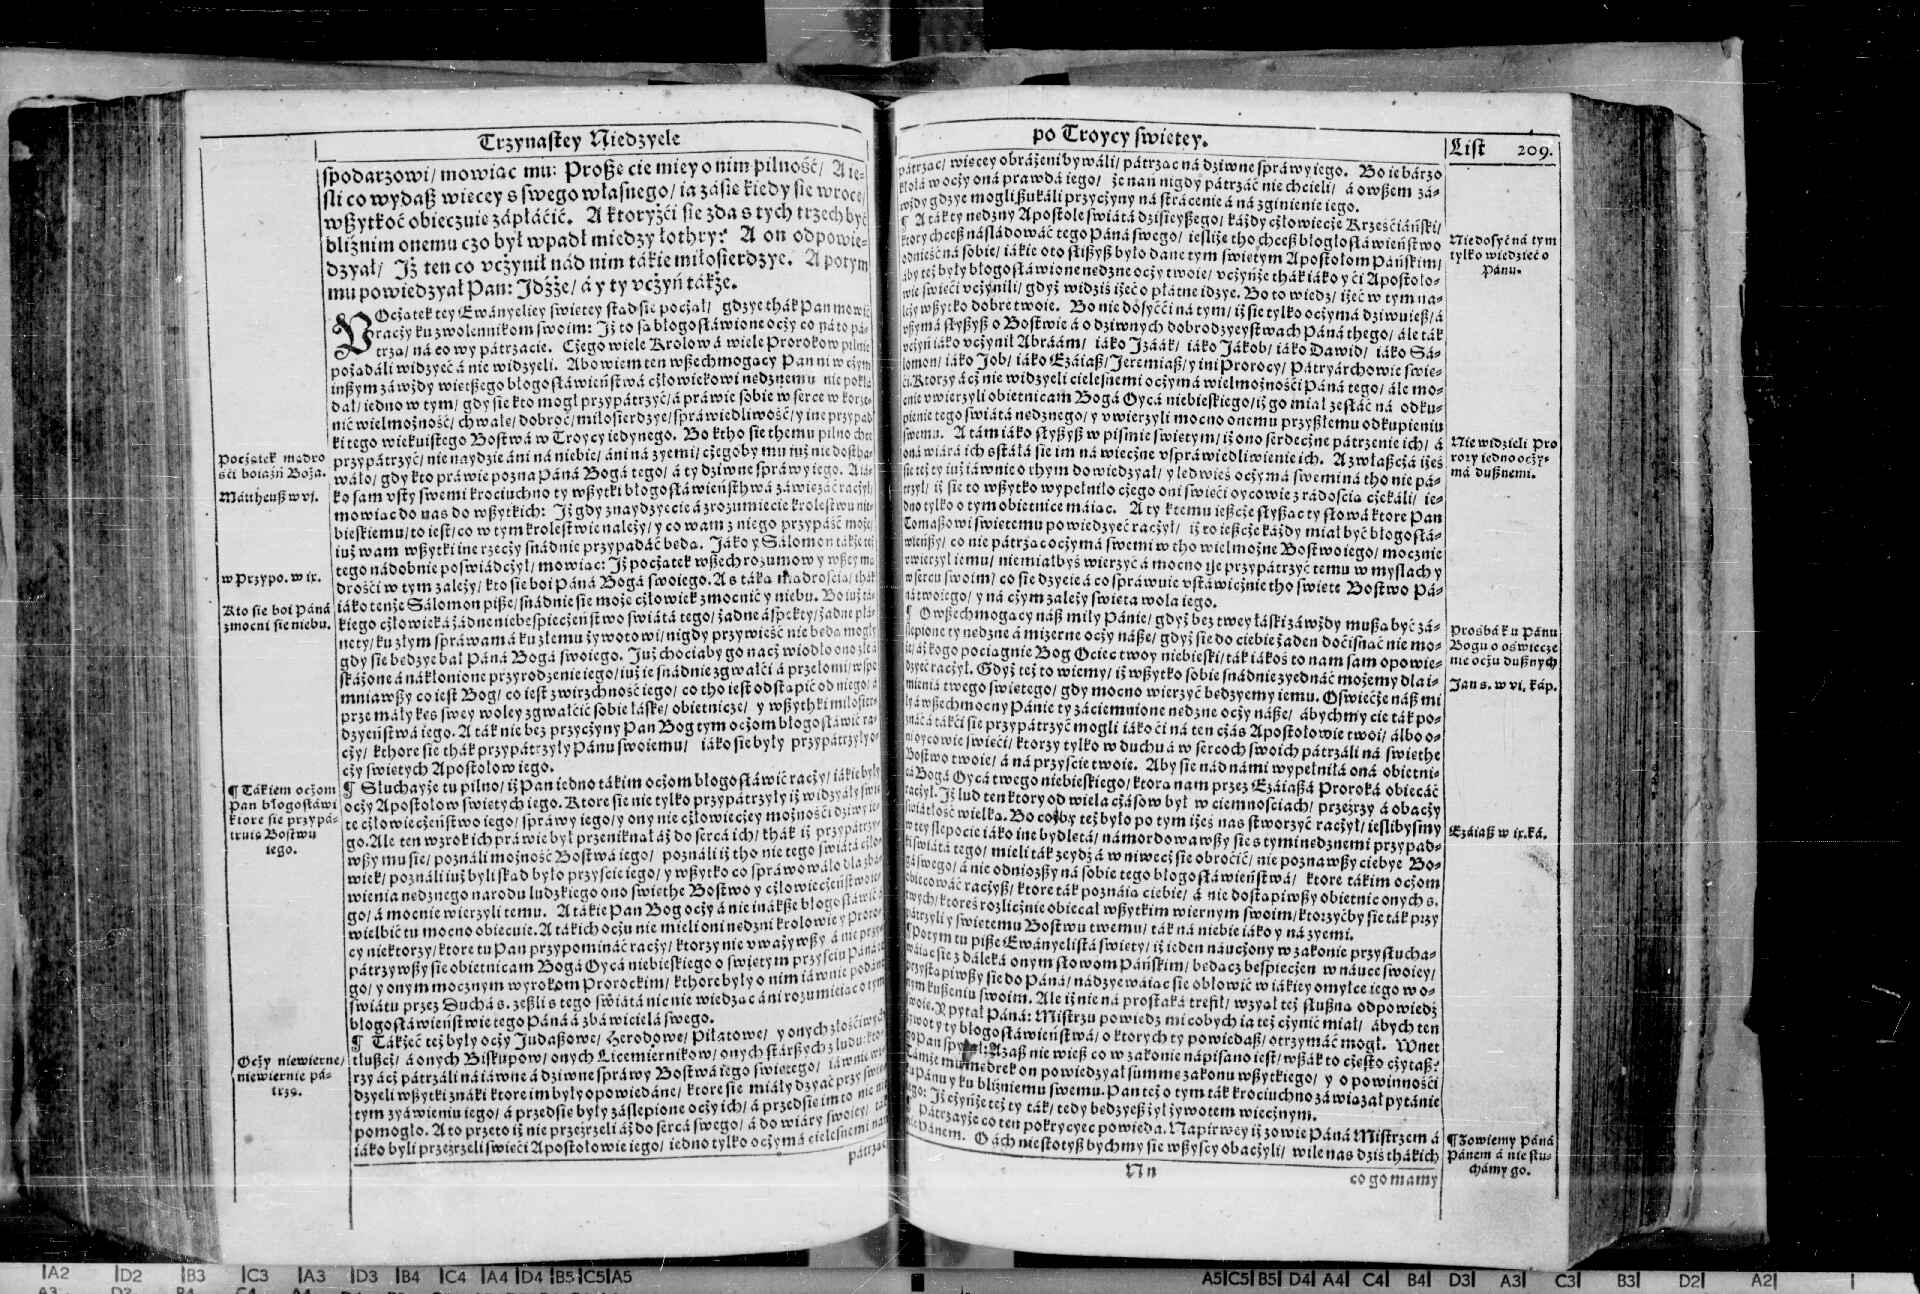 Trzynastey Niedzyele
spodarzowi/ mowiąc mu: Proßę cię miey o nim pilność/ A ie-
sli co wydaß więcey s swego własnego/ ia zasię kiedy się wrocę/
wßytkoć obieczuię zapłáćić. A ktoryżći się zda s tych trzech być
bliźnim onemu czo był wpadł miedzy łothry? A on odpowie-
dzyał/ Iż ten co vczynił nád nim tákie miłosierdzye. A potym
mu powiedzyał Pan: Idźże/ á y ty vczyń tákże.
POcżątek tey Ewányeliey świętey stąd się pocżął/ gdzye thák Pan mowić
racży ku zwolennikom swoim: Iż to są błogosławione ocży co ná to pá-
trzą/ ná co wy pátrzacie. Cżego wiele Krolow á wiele Prorokow pilnie
pożądáli widzyeć á nie widzyeli. Abowiem ten wßechmogący Pan ni w cżym
inßym záwżdy więtßego błogosłáwieństwá cżłowiekowi nędznemu nie pokłá
dał/ iedno w tym/ gdy się kto mogł przypátrzyć/ á práwie sobie w serce w korze-
nić wielmożność/ chwałę/ dobroć/ miłosierdzye/ spráwiedliwość/ y ine przypad
ki tego wiekuistego Bostwá w Troycy iedynego. Bo ktho się themu pilno chce
przypátrzyć/ nie naydzie áni ná niebie/ áni ná zyemi/ cżegoby mu iuż nie dosthá-
wáło/ gdy kto práwie pozna Páná Bogá tego/ á ty dziwne spráwy iego. A iá-
ko sam vsty swemi krociuchno ty wßytki błogosłáwieństhwá záwięzáć racżył/
mowiąc do nas do wßytkich: Iż gdy znaydzyecie á zrozumiecie krolestwu nie-
bieskiemu/ to iest/ co w tym krolestwie należy/ y co wam z niego przypáść może/
iuż wam wßytki ine rzecży snádnie przypádáć będą. Iáko y Sálomon tákże też
tego nadobnie poświádcżył/ mowiąc: Iż pocżątek wßech rozumow y wßey mą
drości w tym zależy/ kto się boi Páná Bogá swoiego. A s táką mądrością/ thák
iáko tenże Sálomon piße/ snádnie się może cżłowiek zmocnić y niebu. Bo iuż tá-
kiego cżłowieká żadne niebespiecżeństwo świátá tego/ żadne áspekty/ żadne plá-
nety/ ku złym spráwam á ku złemu żywotowi/ nigdy przywieść nie będą mogły
gdy się będzye bał Páná Bogá swoiego. Iuż chociaby go nacż wiodło ono złe á
skáżone á nákłonione przyrodzenie iego/ iuż ie snádnie zgwałci á przełomi/ wspo
mniawßy co iest Bog/ co iest zwirzchność iego/ co tho iest odstąpić od niego/ á
prze máły kęs swey woley zgwałcić sobie łáskę/ obietnicze/ y wßythki miłosier-
dzyeństwá iego. A ták nie bez przycżyny Pan Bog tym ocżom błogosłáwić ra-
cży/ kthore się thák przypátrzyły Pánu swoiemu/ iáko się były przypátrzyły o-
cży świętych Apostołow iego.
¶ Słuchayże tu pilno/ iż Pan iedno tákim ocżom błogosłáwić racży/ iákie były
ocży Apostołow świętych iego. Ktore się nie tylko przypátrzyły iż widzyáły świę
te cżłowiecżeństwo iego/ spráwy iego/ y ony nie cżłowiecżey możności dziwy ie-
go. Ale ten wzrok ich práwie był przeniknął áż do sercá ich/ thák iż przypátrzy-
wßy mu się/ poználi możność Bostwá iego/ poználi iż tho nie tego świátá cżło-
wiek/ poználi iuż byli skąd było przyście iego/ y wßytko co spráwowáło dla zbá-
wienia nędznego narodu ludzkiego ono święthe Bostwo y cżłowiecżeństwo ie-
go/ á mocnie wierzyli temu. A tákie Pan Bog ocży á nie inákße błogosłáwić á
wielbić tu mocno obiecuie. A tákich ocżu nie mieli oni nędzni krolowie y Proro-
cy niektorzy/ ktore tu Pan przypomináć racży/ ktorzy nie vważywßy á nie przy
pátrzywßy się obietnicam Bogá Oycá niebieskiego o świętym przyściu Páná te
go/ y onym mocnym wyrokom Prorockim/ kthore były o nim iáwnie podány
świátu przez Duchá s. zeßli s tego świátá nic nie wiedząc áni rozumieiąc o tym
błogosłáwieństwie tego Páná á zbáwicielá swego.
¶ Tákżeć też były ocży Iudaßowe/ Herodowe/ Piłatowe/ y onych złościwych
tłußcż/ á onych Biskupow/ onych Licemiernikow/ onych stárßych z ludu: kto-
rzy ácż pátrzáli ná iáwne á dziwne spráwy Bostwá iego świętego/ iáwnie wi-
dzyeli wßytki znáki ktore im były opowiedáne/ ktore się miáły dzyać przy świę
tym zyáwieniu iego/ á przedsię były záślepione ocży ich/ á przedsię im to nic nie
pomogło. A to przeto iż nie przeźrzeli áż do sercá swego/ á do wiáry swoiey/ ták
iáko byli przeźrzeli święci Apostołowie iego/ iedno tylko ocżymá cielesnemi nań
pátrząc
Pocżątek mądro
ści boiaźń Boża.
Máttheuß w vj.
w Przypo. w ix.
Kto się boi Páná
zmocni się niebu.
¶ Tákiem ocżom
Pan błogosłáwi
ktore się przypá-
truią Bostwu
iego.
Ocży niewierne/
niewiernie pá-
trzą.
po Troycy świętey.
List 209.
pátrząc/ więcey obráżeni bywáli/ pátrząc ná dziwne spráwy iego. Bo ie bárzo
kłołá w ocży oná prawdá iego/ że nań nigdy pátrzáć nie chcieli/ á owßem zá-
wżdy gdzye mogli ßukáli przycżyny ná strácenie á ná zginienie iego.
¶ A ták ty nędzny Apostole świátá dzisieyßego/ káżdy cżłowiecże Krześciáński/
ktory chceß násládowáć tego Páná swego/ iesliże tho chceß błogłosłáwieństwo
odnieść ná sobie/ iákie oto słißyß było dáne tym świętym Apostołom Páńskim/
áby też były błogosłáwione nędzne ocży twoie/ vcżyńże thák iáko y ci Apostoło-
wie święci vcżynili/ gdyż widzis iżeć o płatne idzye. Bo to wiedz/ iżeć w tym na-
leży wßytko dobre twoie. Bo nie dosyćći ná tym/ iż się tylko ocżymá dziwuieß/ á
vßymá słyßyß o Bostwie á o dziwnych dobrodzyeystwach Páná thego/ ále ták
vcżyń iáko vcżynił Abráám/ iáko Izáák/ iáko Iákob/ iáko Dawid/ iáko Sá-
lomon/ iáko Iob/ iáko Ezáiaß/ Ieremiaß/ y ini Prorocy/ Pátryárchowie świę-
ci. Ktorzy ácż nie widzyeli cielesnemi ocżymá wielmożności Páná tego/ ále mo-
cnie vwierzyli obietnicam Bogá Oycá niebieskiego/ iż go miał zesłáć ná odku-
pienie tego świátá nędznego/ y vwierzyli mocno onemu przyßłemu odkupieniu
swemu. A tám iáko słyßyß w piśmie świętym/ iż ono serdecżne pátrzenie ich/ á
oná wiárá ich sstáłá się im ná wiecżne vspráwiedliwienie ich. A zwłaßcżá iżeś
się też ty iuż iáwnie o thym dowiedzyał/ y ledwieś ocżymá swemi ná tho nie pá-
trzył/ iż się to wßytko wypełniło cżego oni święci oycowie z rádością cżekáli/ ie-
dno tylko o tym obietnice máiąc. A ty k temu ießcże słyßąc ty słowá ktore Pan
Tomaßowi świętemu powiedzyeć racżył/ iż to ießcże káżdy miał być błogosłá-
wieńßy/ co nie pátrząc ocżymá swemi w tho wielmożne Bostwo iego/ mocnie
vwierzył iemu/ nie miałbyś wierzyć á mocno się przypátrzyć temu w myslach y
w sercu swoim/ co się dzyeie á co spráwuie vstáwicżnie tho święte Bostwo Pá-
ná twoiego/ y ná cżym zależy święta wola iego.
¶ O wßechmogący náß miły Pánie/ gdyż bez twey łáski záwżdy mußą być zá-
ślepione ty nędzne á mizerne ocży náße/ gdyż się do ciebie żaden docisnąć nie mo-
że/ áż kogo pociągnie Bog Ociec twoy niebieski/ ták iákoś to nam sam opowie-
dzyeć racżył. Gdyż też to wiemy/ iż wßytko sobie snádnie zyednáć możemy dla i-
mieniá twego świętego/ gdy mocno wierzyć będzyemy iemu. Oświećże náß mi
ły á wßechmocny Pánie ty záciemnione nędzne ocży náße/ ábychmy cię ták po-
znáć á tákći się przypátrzyć mogli iáko ći ná ten cżás Apostołowie twoi/ álbo o-
ni oycowie święci/ ktorzy tylko w duchu á w sercoch swoich pátrzáli ná święthe
Bostwo twoie/ á ná przyście twoie. Aby się nád námi wypełniłá oná obietni-
cá Bogá Oycá twego niebieskiego/ ktorą nam przez Ezáiaßá Proroká obiecáć
racżył. Iż lud ten ktory od wielá cżásow był w ciemnościach/ przeźrzy á obacży
świátłość wielką. Bo cożby też było po tym iżeś nas stworzyć racżył/ ieslibysmy
w tey ślepocie iáko ine bydlętá/ námordowawßy się s tymi nędznemi przypad-
ki świátá tego/ mieli ták zeydź á w niwecż się obrócić/ nie poznawßy ciebye Bo-
gá swego/ á nie odniozßy ná sobie tego błogosłáwieństwá/ ktore tákim ocżom
obiecowáć racżyß/ ktore ták poznáią ciebie/ á nie dostąpiwßy obietnic onych s.
twych/ ktoreś rozlicżnie obiecał wßytkim wiernym swoim/ ktorzyćby się ták przy
pátrzyli y świętemu Bostwu twemu/ ták ná niebie iáko y ná zyemi.
¶ Potym tu piße Ewányelistá święty/ iż ieden náucżony w zakonie przysłucha-
wáiąc się z dáleká onym słowom Páńskim/ będącz bespiecżen w náuce swoiey/
przystąpiwßy się do Páná/ nádzyewáiąc się obłowić w iákiey omyłce iego wo-
nym kußeniu swoim. Ale iż nie ná prostaká trefił/ wzyął też słußną odpowiedź
swoię. Pytał Páná: Mistrzu powiedz mi cobych ia też cżynić miał/ ábych ten
żywot y ty błogosłáwieństwá/ o ktorych ty powiedaß/ otrzymáć mogł. Wnet
go Pan spytał: Azaß nie wieß co w zakonie nápisano iest/ wßák to cżęsto cżytaß?
Támże mu mędrek on powiedzyał summę zakonu wßytkiego/ y o powinności
ku Pánu y ku bliźniemu swemu. Pan też o tym ták krociuchno záwiązał pytánie
iego: Iż cżyńże też ty ták/ tedy będzyeß żył żywotem wiecżnym.
¶ Pátrzayże co ten pokrycyec powieda. Napirwey iż zowie Páná Mistrzem á
nie Pánem. O ách niestotyß bychmy się wßyscy obacżyli/ wile nas dziś thákich
Nn
co go mamy
Nie dosyć ná tym
tylko wiedzieć o
Pánu.
Nie widzieli Pro
rocy iedno ocży-
má dußnemi.
Prośbá ku Pánu
Bogu o oświece
nie ocżu dußnych
Ian s. w vi. kap.
Ezáiaß w ix. ká.
¶ Zowiemy Páná
Pánem á nie słu-
chamy go.
A2 D2 B3 C3 A3 D3 B4 C4 A4 D4 B5 C5 A5
A5 C5 B5 D4 A4 C4 B4 D3 A3 C3 B3 D2 A2